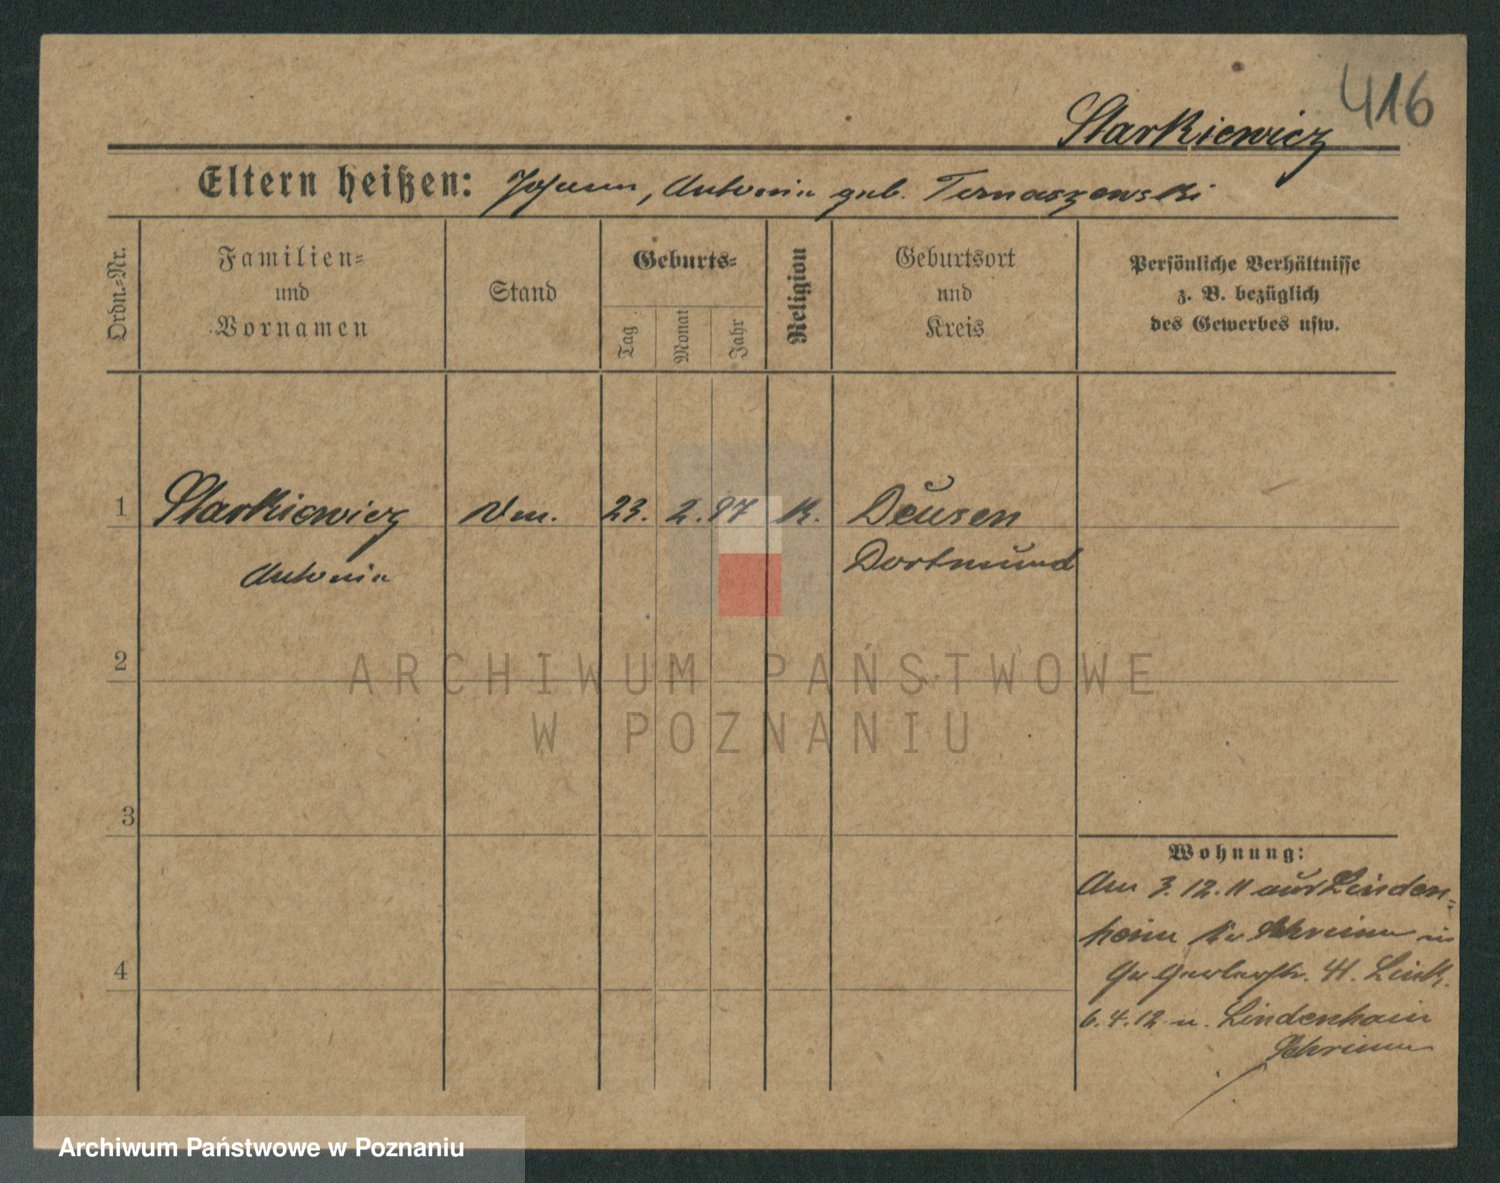 416
Starkiewicz
Eltern heißen: Johann, Antonie geb. Tomaszewski
Ordn.-Nr.
Familien- und Vornamen
Stand
Geburts-
Tag
Monat
Jahr
Religion
Geburtsort und Kreis
Persönliche Verhältnisse
z. B. bezüglich
des Gewerbes usw.
1 Starkiewicz 23. 2. 97 K. Deusen
Antonie Dortmund
2
ARCHIWUM PAŃSTWOWE
W POZNANIU
3
Wohnung:
Am 3. 12. 11 aus Linden-
hain Kr Schrimm in
4
41. Link.
6. 4. 12 n. Lindenhain
Schrimm
Archiwum Państwowe w Poznaniu